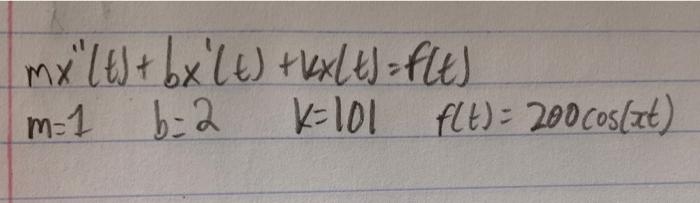 mx"(t) + bx'(t) + kx(t) = f(t)
m=1 b=2 k=101 f(t) = 200cos(xt)